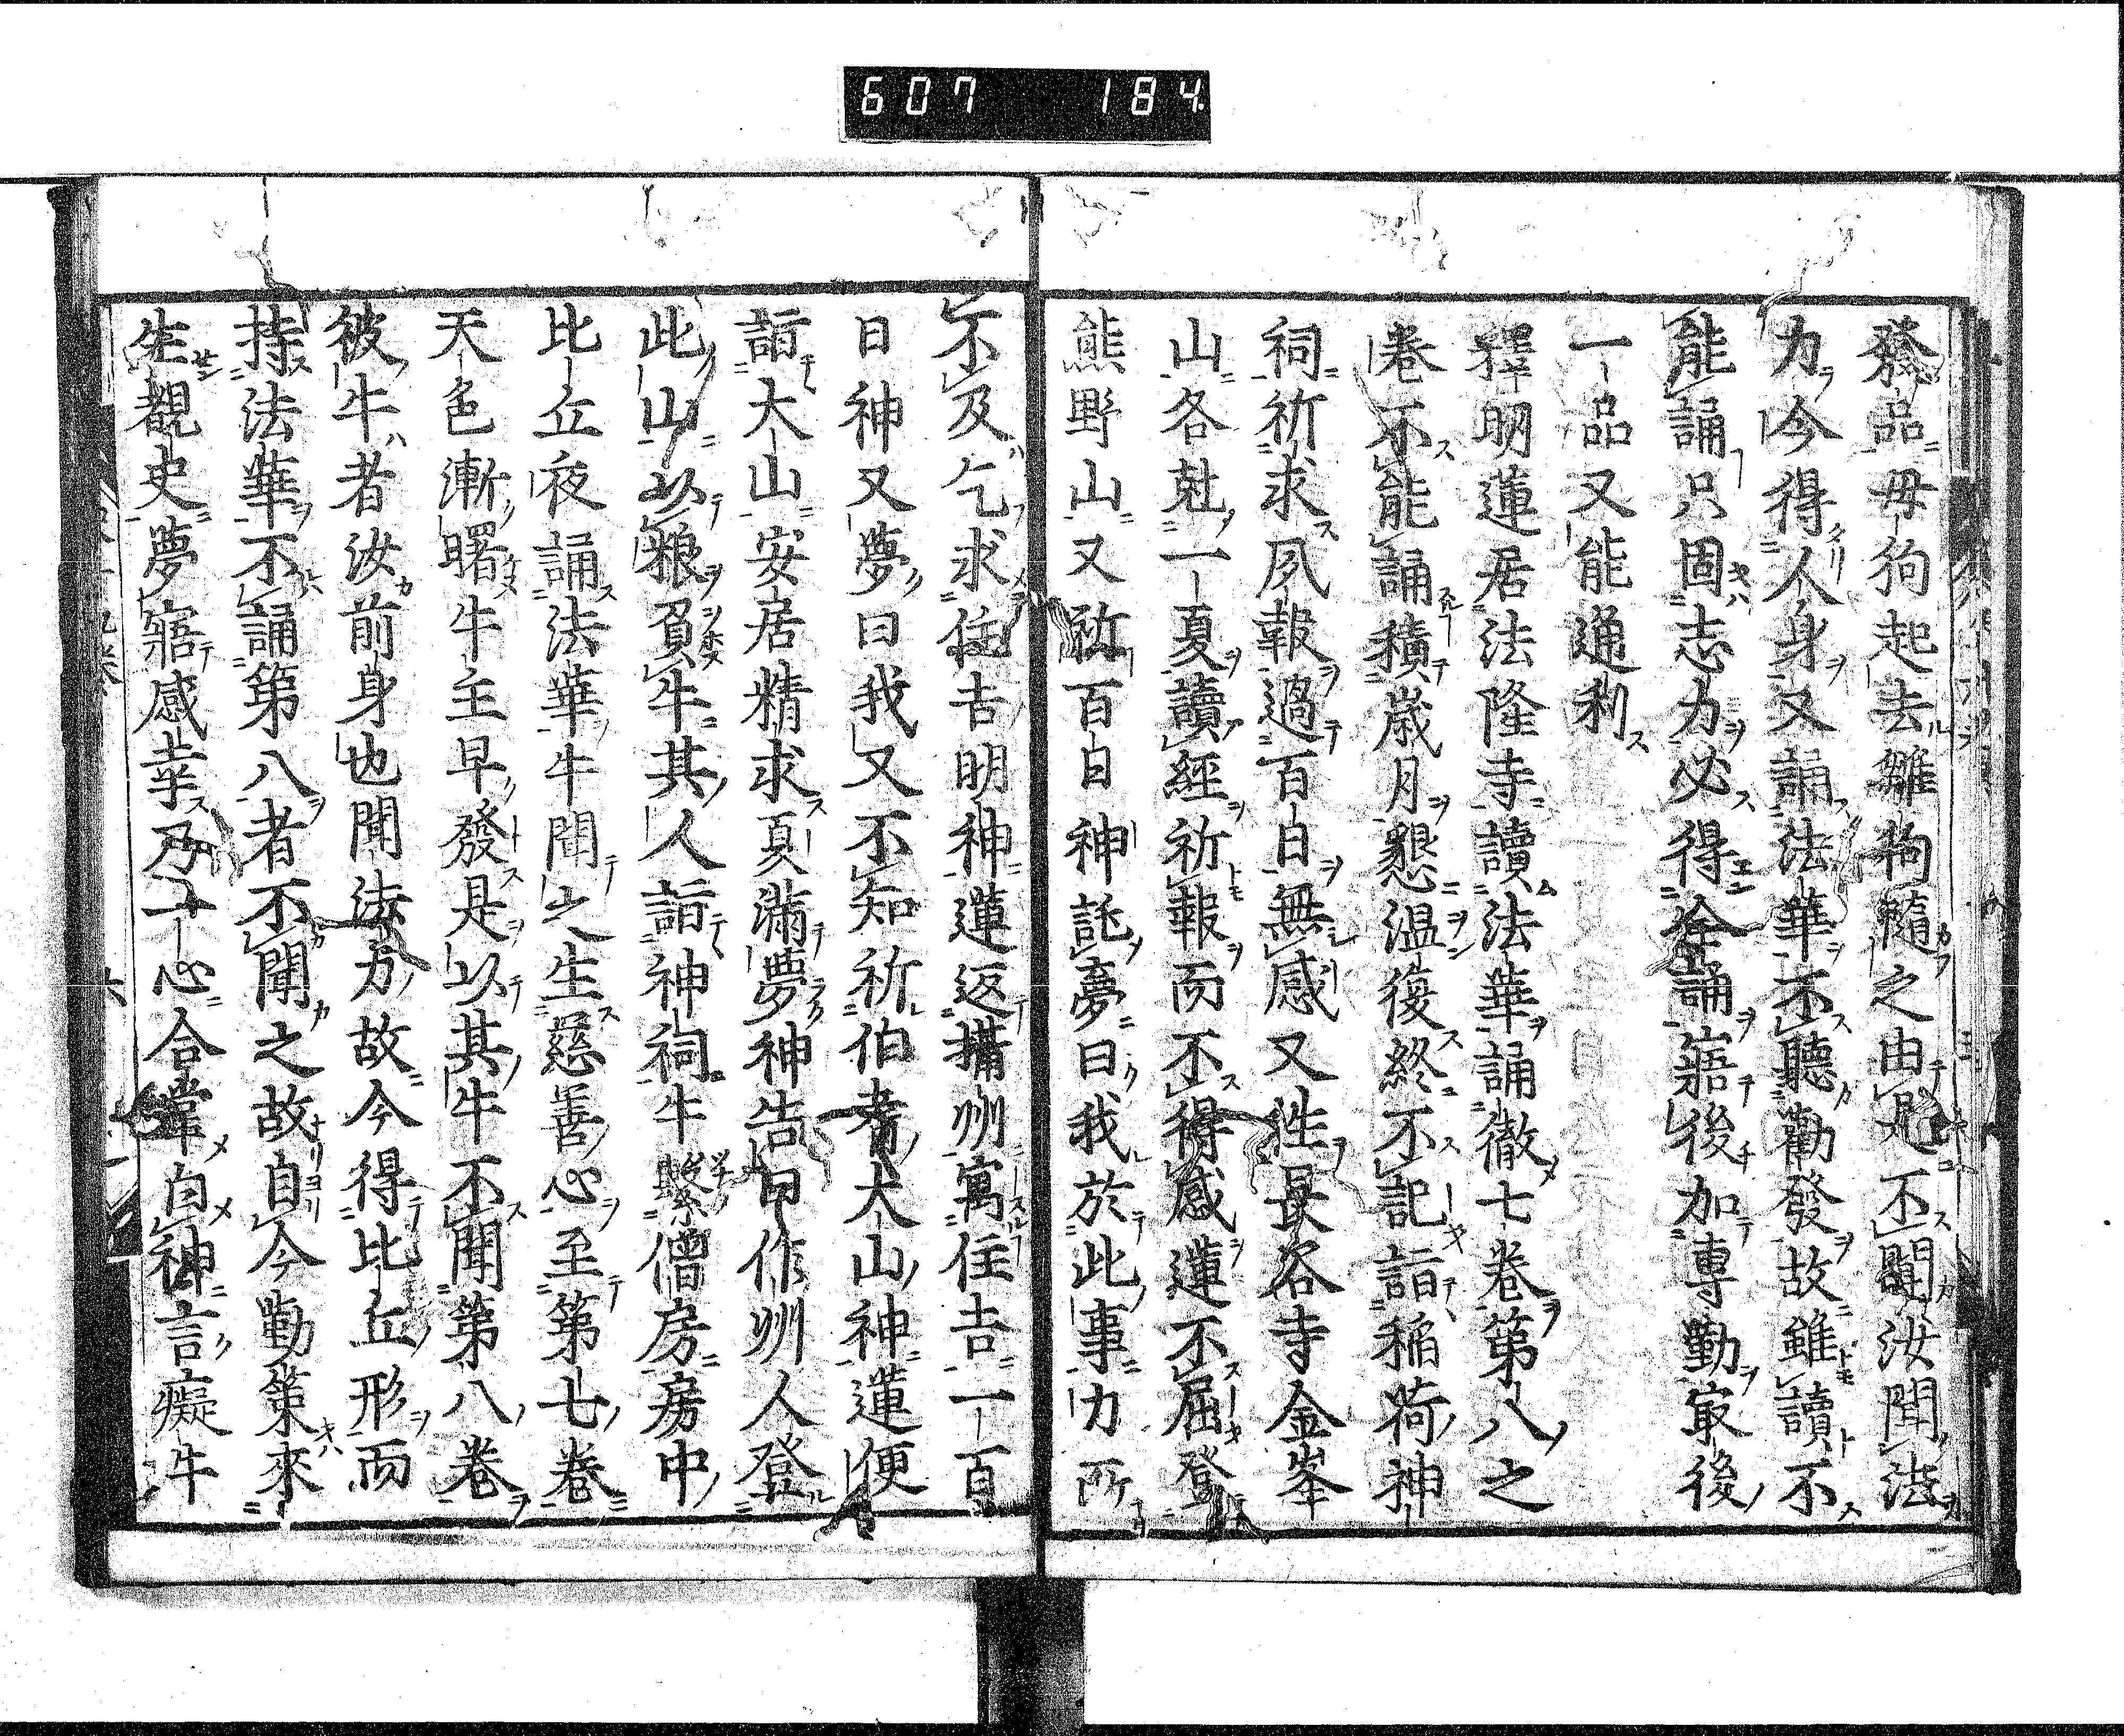 607 184
發品母狗起去雛狗隨之由是不聞汝聞法
力今得人身又誦法華不聽勸發故雖讀不
能誦只固志力必得全誦寤後加專勤㝡後
一品又能通利
釋明蓮居法隆寺讀法華誦徹七卷第八之
卷不能誦積歲月懇溫復終不記詣稲荷神
祠祈求夙報過百日無感又徃長谷寺金峯
山各尅一夏讀經祈報而不得感蓮不屈登
熊野山又祈百日神託夢曰我於此事力所
不及乞求住吉明神蓮返攝州寓住吉一百
日神又夢曰我又不知祈伯耆大山神蓮便
詣大山安居精求夏滿夢神告曰作州人登
此山以粮負牛其人詣神祠牛繫僧房房中
比丘夜誦法華牛聞之生慈善心至第七卷
天色漸曙牛主早發是以其牛不聞第八卷
彼牛者汝前身也聞法力故今得比丘形而
持法華不誦第八者不聞之故自今勤策來
生覩史夢寤感幸乃一心合掌白神言癡牛